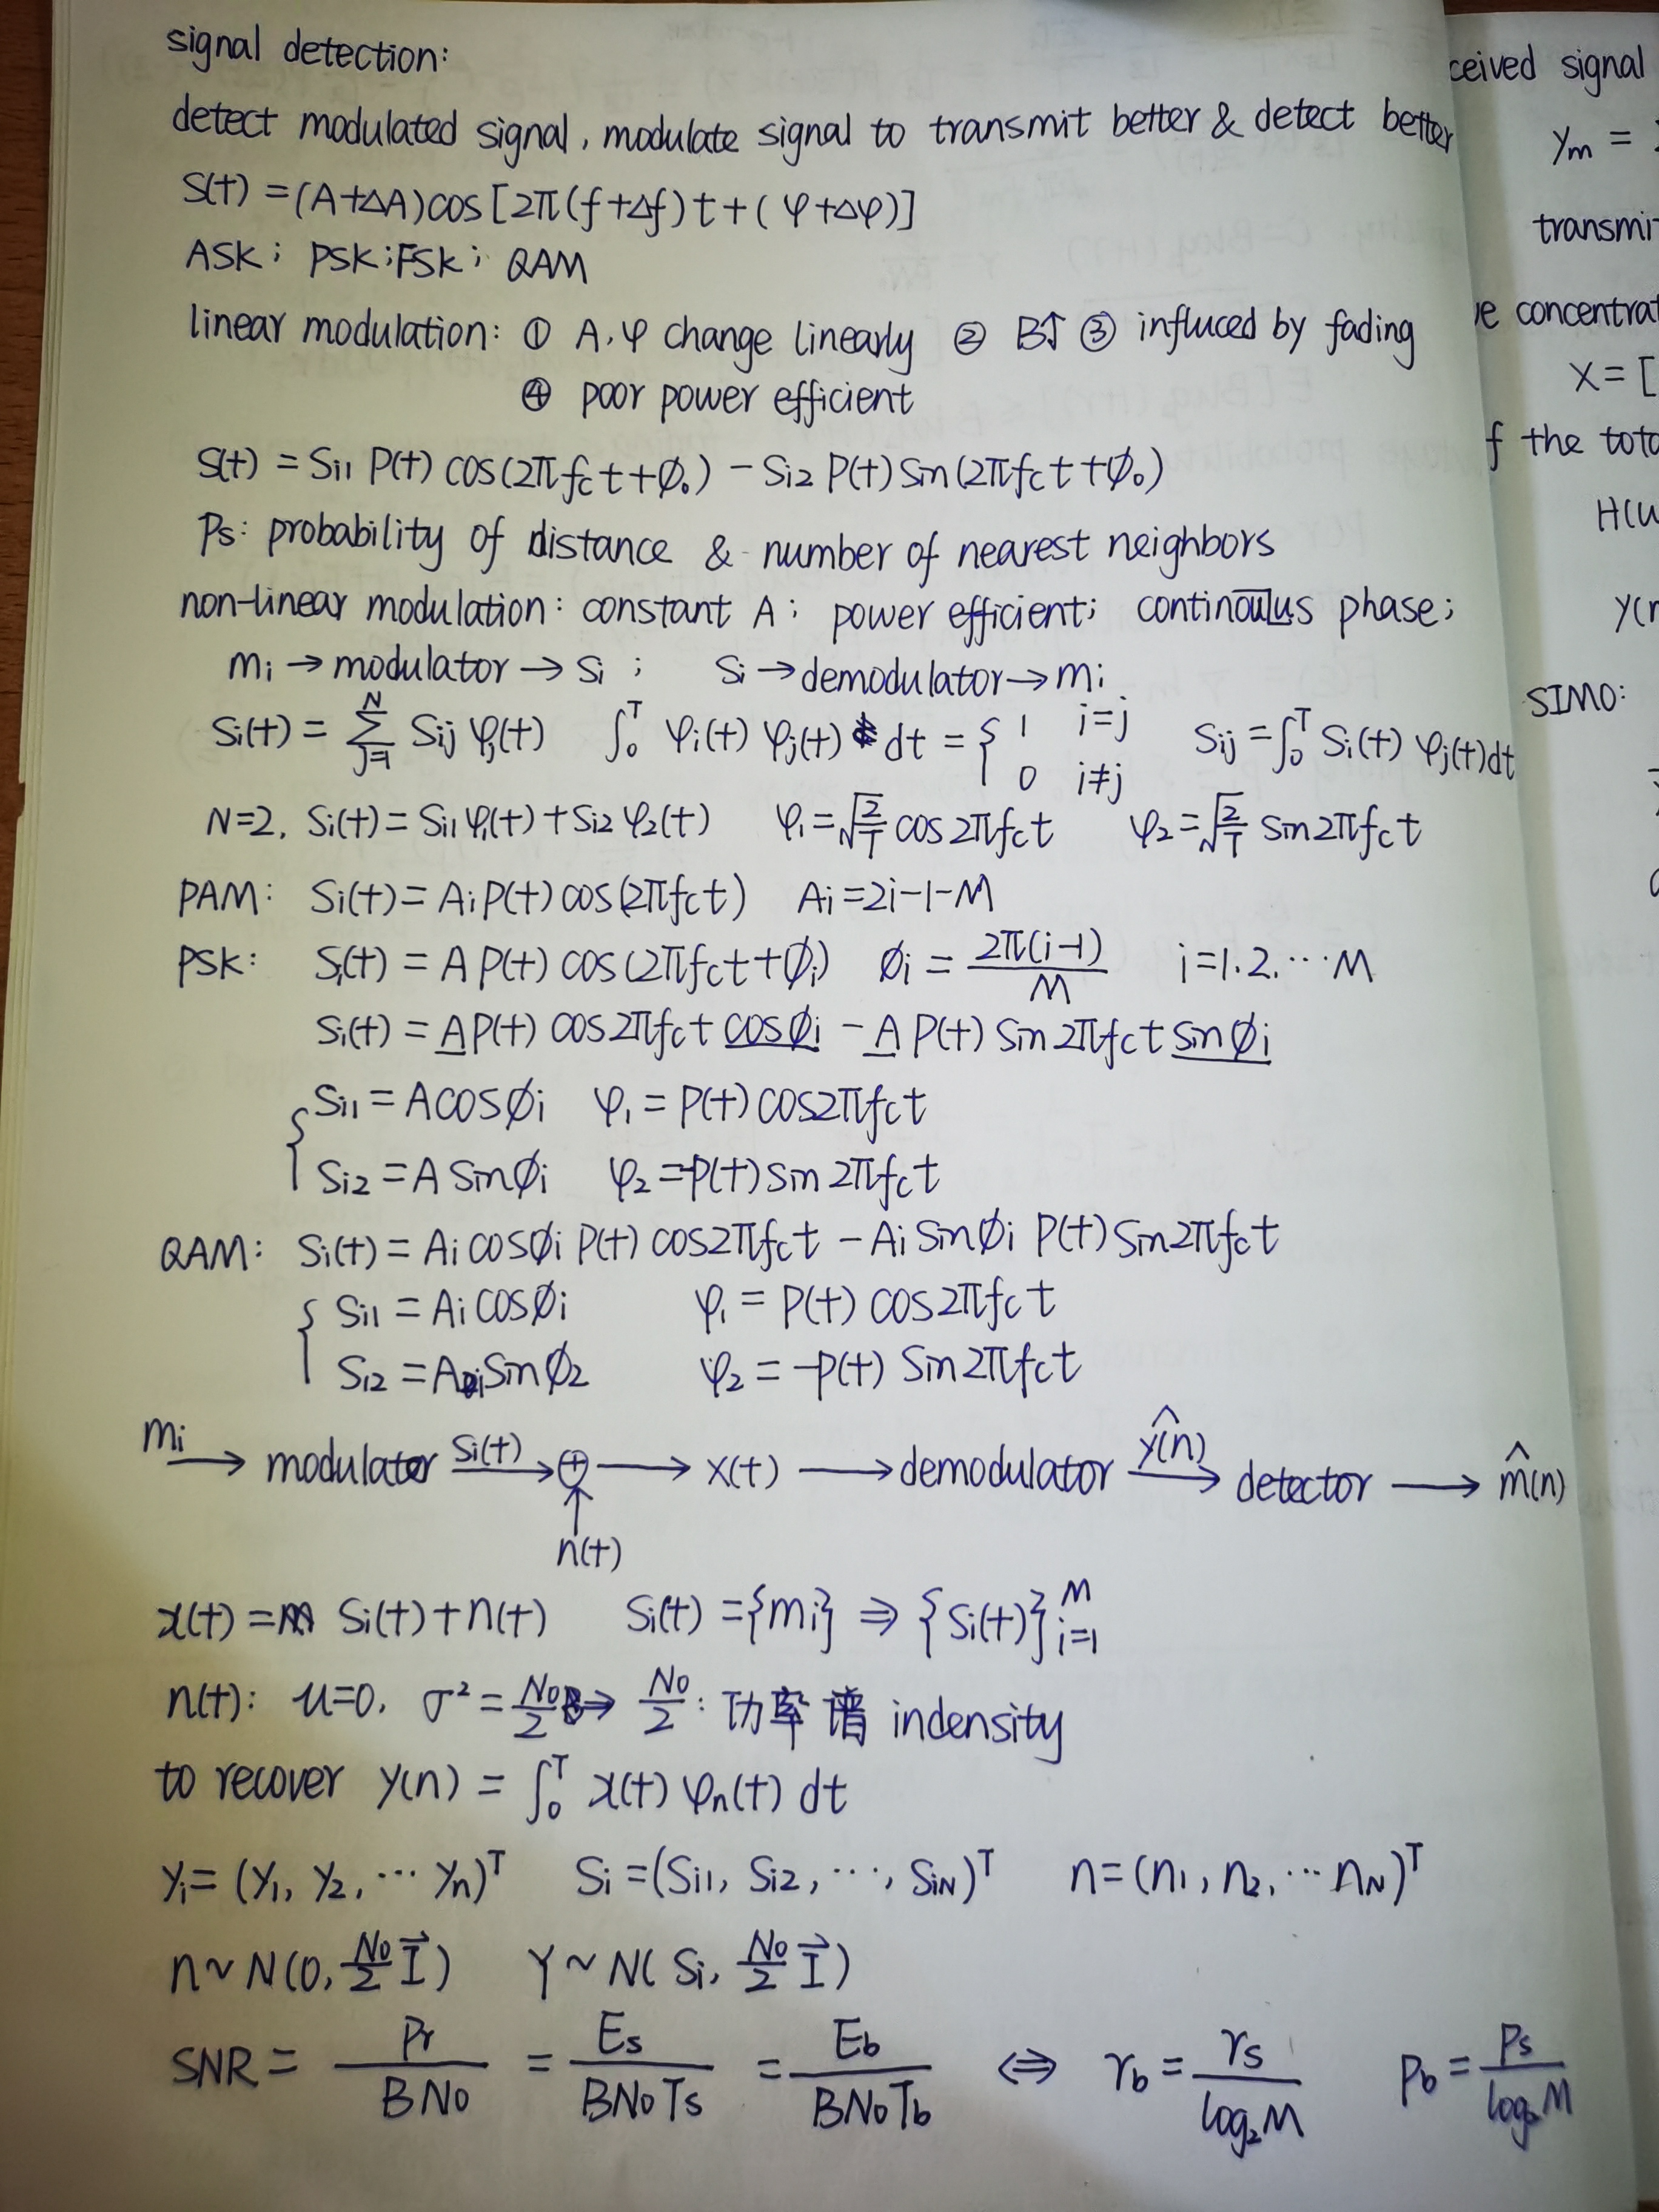 signal detection:
detect modulated signal, modulate signal to transmit better & detect better
S(t) = (A+ΔA)cos[2π(f+Δf)t+(φ+Δφ)]
ASK; PSK; FSK; QAM
linear modulation: ① A,φ change linearly ② B↑ ③ influced by fading
④ poor power efficient
S(t) = Si1 P(t) cos(2πfct+ϕ0) - Si2 P(t) sin(2πfct+ϕ0)
Ps: probability of distance & number of nearest neighbors
non-linear modulation: constant A; power efficient; continuus phase;
mi → modulator → Si ; Si → demodulator → mi
Si(t) = ∑_{j=1}^{N} Sij φj(t) ∫_0^T φi(t) φj(t) dt = { 1 i=j 0 i≠j Sij = ∫_0^T Si(t) φj(t)dt
N=2, Si(t) = Si1 φ1(t) + Si2 φ2(t) φ1 = √(2/T) cos2πfct φ2 = √(2/T) sin2πfct
PAM: Si(t) = Ai P(t) cos(2πfct) Ai = 2i-1-M
PSK: Si(t) = A P(t) cos(2πfct+ϕi) ϕi = 2π(i-1)/M i=1.2.⋯M
Si(t) = A P(t) cos2πfct cosϕi - A P(t) sin2πfct sinϕi
{ Si1 = Acosϕi φ1 = P(t) cos2πfct
Si2 = A sinϕi φ2 = -P(t) sin2πfct
QAM: Si(t) = Ai cosϕi P(t) cos2πfct - Ai sinϕi P(t) sin2πfct
{ Si1 = Ai cosϕi φ1 = P(t) cos2πfct
Si2 = Ai sinϕ2 φ2 = -P(t) sin2πfct
mi → modulator Si(t) → ⊕ → x(t) → demodulator ŷ(n) → detector → m̂(n)
n(t)
x(t) = Si(t)+n(t) Si(t) = {mi} ⇒ {Si(t)}_{i=1}^{M}
n(t): u=0, σ² = N0/2 → N0/2 : 功率谱 indensity
to recover y(n) = ∫_0^T x(t) φn(t) dt
yi = (y1, y2, ⋯ yn)^T Si = (Si1, Si2, ⋯, SiN)^T n = (n1, n2, ⋯ nN)^T
n ~ N(0, N0/2 I⃗) Y ~ N(Si, N0/2 I⃗)
SNR = Pr/(BN0) = Es/(BN0Ts) = Eb/(BN0Tb) ⇔ γb = γs/log2M Pb = Ps/log2M
ceived signal
ym =
transmi
e concentrat
X = [
f the tota
H(u
y(n
SIMO: